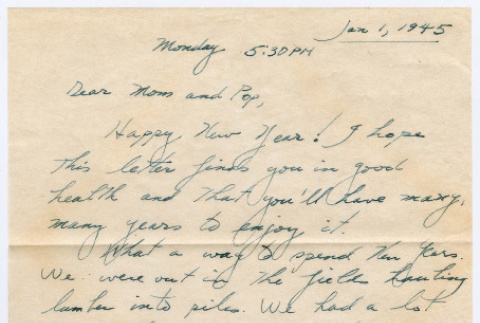 Jan 1, 1945
Monday 5:30 PM
Dear Mom and Pop,
Happy New Year! I hope
this letter finds you in good
health and that you'll have many,
many years to enjoy it.
What a way to spend New Years.
We were out in the fields hauling
lumber into piles. We had a lot